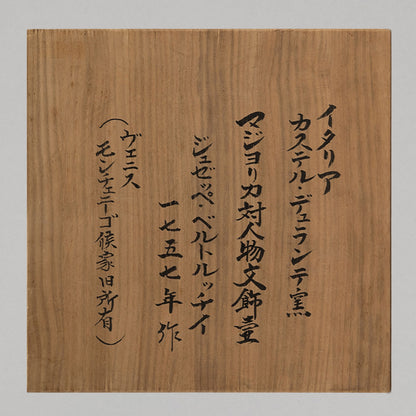 イタリア
カステル・デュランテ窯
マジョリカ対人物文飾壷
ジュゼッペ・ベルトルッチイ
一七五七年作
（ヴェニス
モンチェニーゴ候家旧所有）